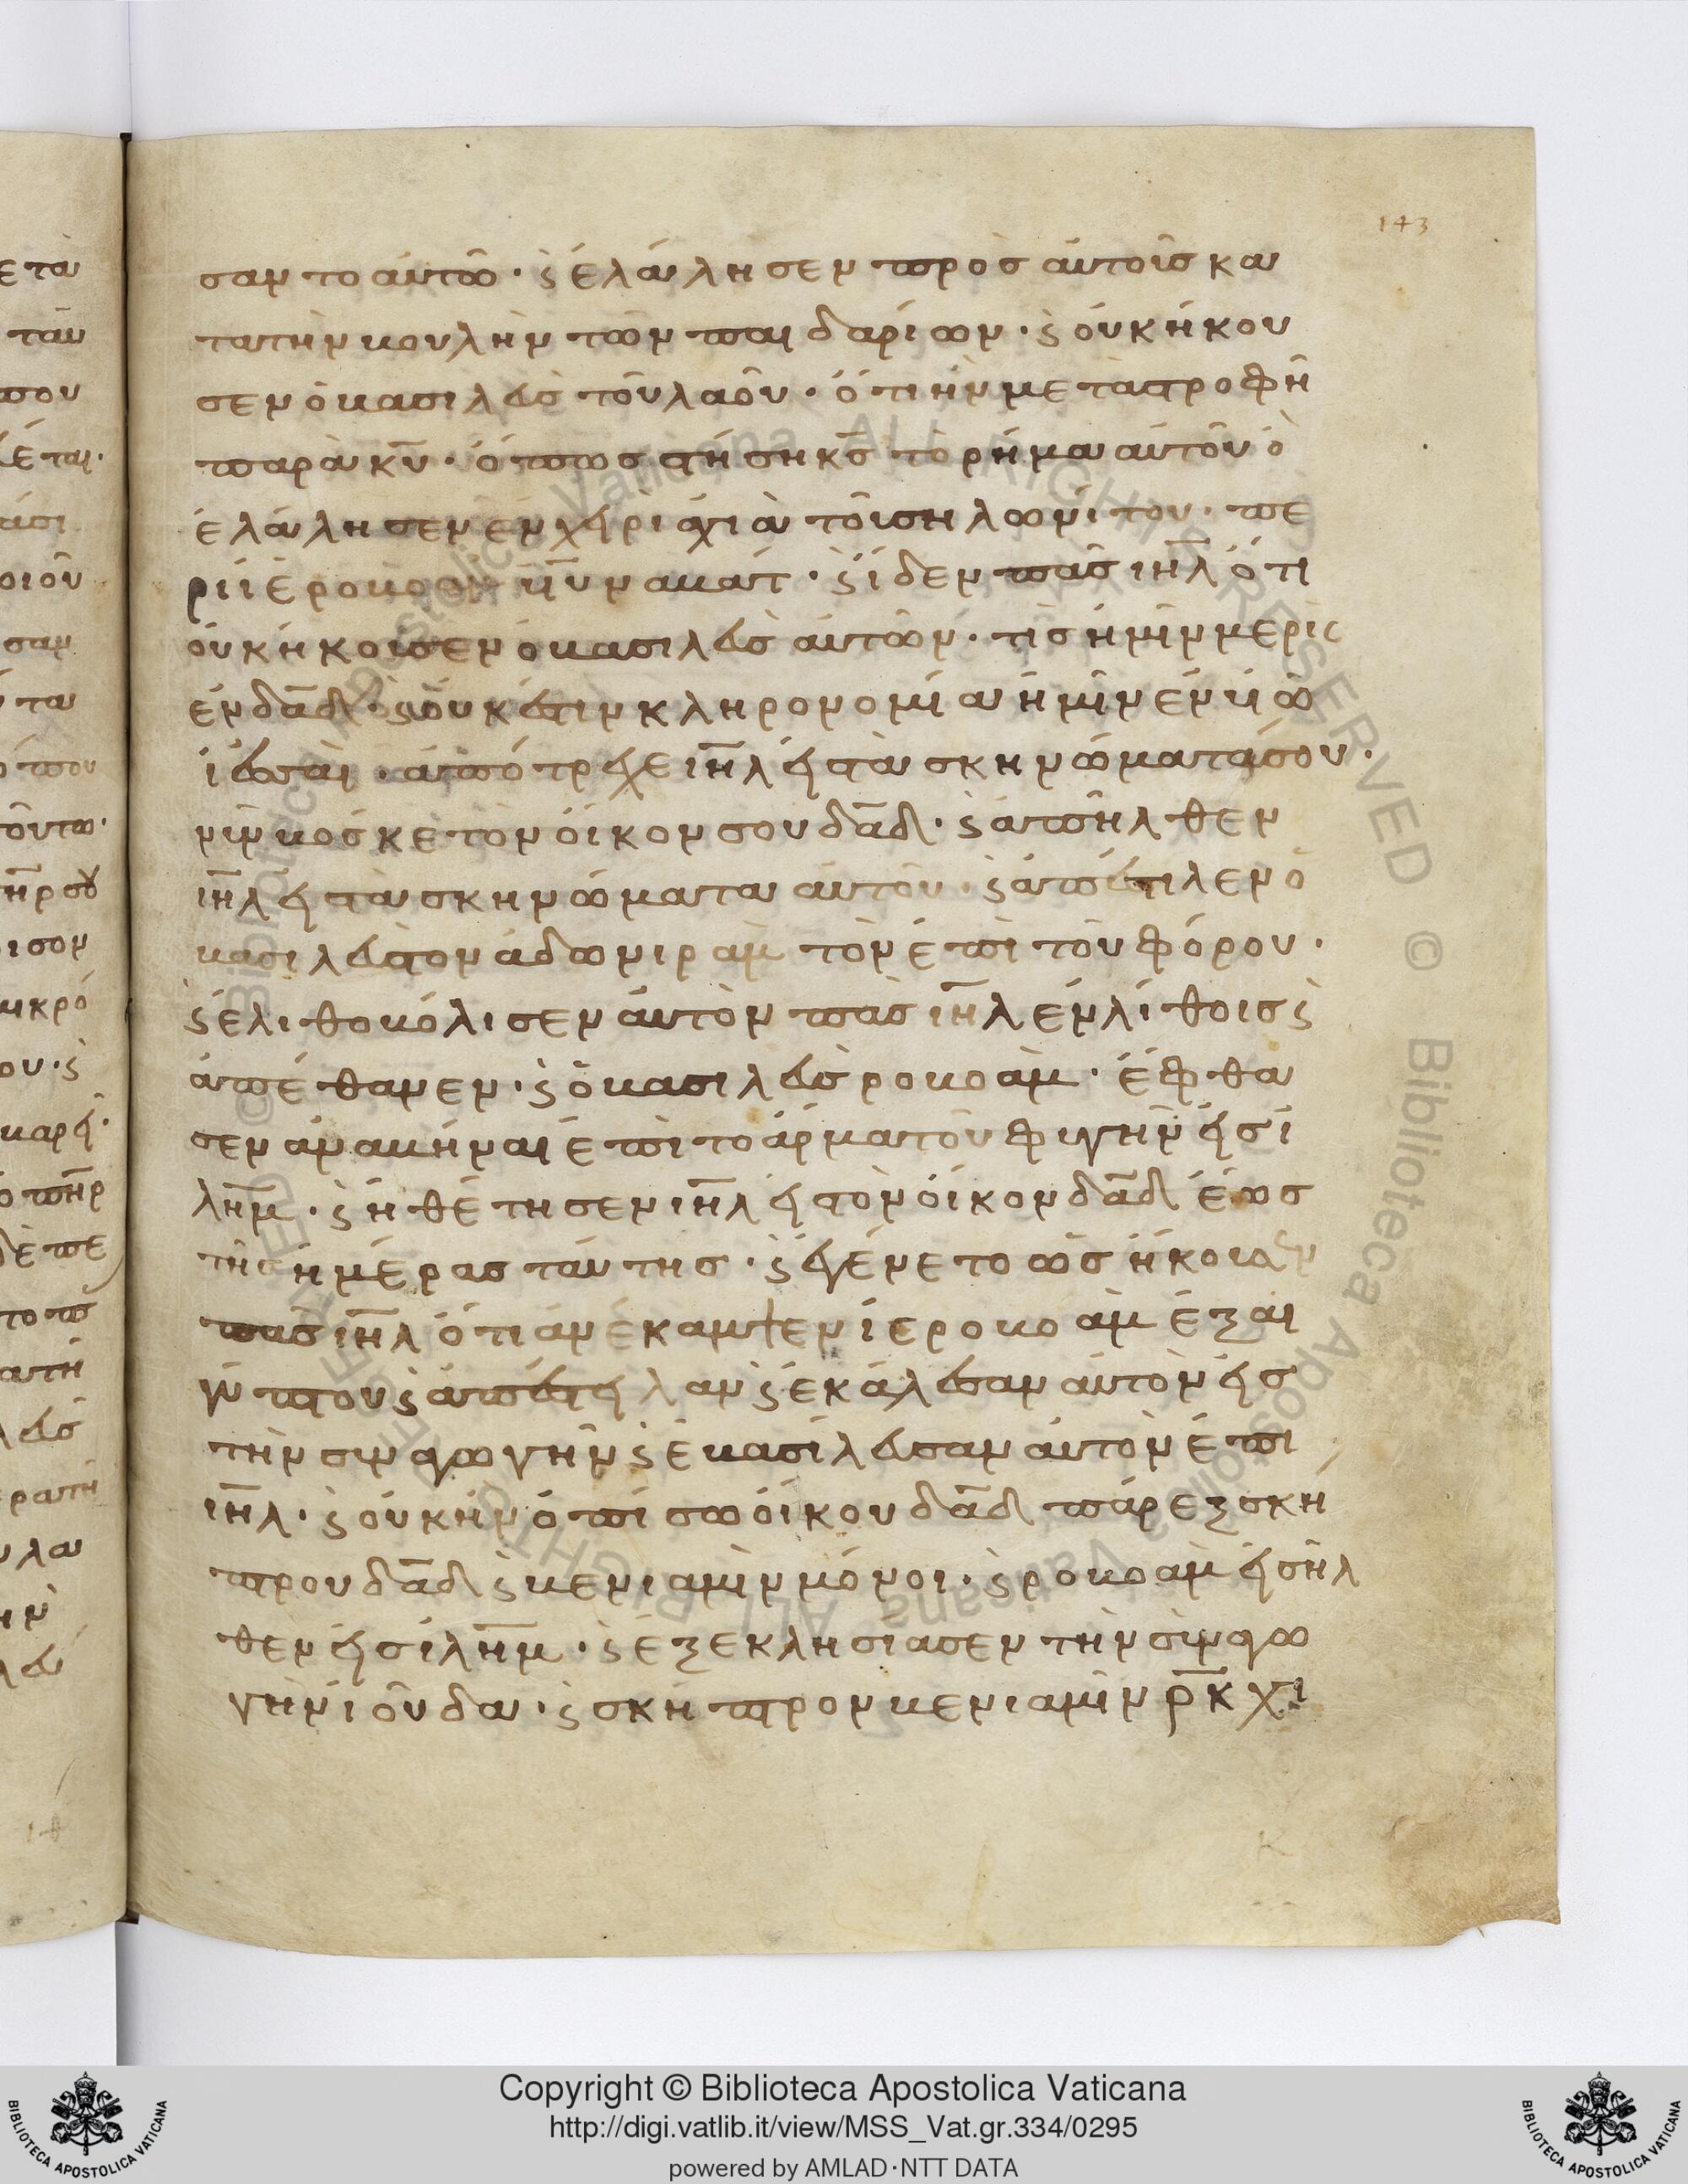 143
σαν το αὐτῶ· ϛ ἐλάλησεν πρὸς αὐτοὺς κα
τα τὴν βουλὴν τῶν παιδαρίων· ϛ οὐκ ἤκου
σεν ὁ βασιλεὺς τοῦ λαοῦ· ὅτι ἦν μεταστροφὴ
παρὰ κ̅υ̅· ὅπως στήση κ̅ς̅ τὸ ρῆμα αὐτοῦ ὃ
ἐλάλησεν ἐν χειρὶ ἀχιὰ τοῦ σηλωνίτου· πε
ρὶ ἱεροβοὰμ υ̅υ̅ ναβάτ· ϛ ἴδεν πᾶς ι̅η̅λ̅ ὅτι
οὐκ ἤκουσεν ὁ βασιλεὺς αὐτῶν· τίς ἡμῖν μερὶς
ἐν δα̅δ̅· ϛ οὐκ ἔστιν κληρονομία ἡμῖν ἐν υἱῶ
ἰεσσαί· ἀπότρεχε ι̅η̅λ̅ εἰς τὰ σκηνώματά σου·
νῦν βόσκε τὸν οἶκον σου δα̅δ̅· ϛ ἀπῆλθεν
ι̅η̅λ̅ εἰς τὰ σκηνώματα αὐτοῦ· ϛ ἀπέστιλεν ὁ
βασιλεὺς τὸν ἀδωνιρὰμ τὸν ἐπὶ τοῦ φόρου·
ϛ ἐλιθοβόλισεν αὐτὸν πᾶς ι̅η̅λ̅ ἐν λίθοις ϛ
ἀπέθανεν· ϛ ὁ βασιλεὺς ροβοὰμ· ἔφθα
σεν ἀναβῆναι ἐπὶ τὸ ἅρμα τοῦ φυγῆν εἰς ἱ
λη̅μ̅· ϛ ἠθέτησεν ι̅η̅λ̅ εἰς τὸν οἶκον δα̅δ̅ ἕως
τῆς ἡμέρας ταύτης· ϛ ἐγένετο ὡς ἤκουσεν
πᾶς ι̅η̅λ̅ ὅτι ἀνέκαμψεν ἱεροβοὰμ ἐξ αἰ
γύπτου ϛ ἀπέστειλαν ϛ ἐκάλεσαν αὐτὸν εἰς
τὴν συναγωγὴν ϛ ἐβασίλευσαν αὐτὸν ἐπὶ
ι̅η̅λ̅· ϛ οὐκ ἦν ὀπίσω οἴκου δα̅δ̅ πάρεξ σκή
πτρου δα̅δ̅ ϛ βενιαμὶν μόνοι· ϛ ροβοὰμ εἰσῆλ
θεν εἰς ἱλη̅μ̅· ϛ ἐξεκλησίασεν τὴν συναγω
γὴν ἰούδα· ϛ σκῆπτρον βενιαμὶν ρ̅κ̅ χι
Copyright © Biblioteca Apostolica Vaticana
http://digi.vatlib.it/view/MSS_Vat.gr.334/0295
powered by AMLAD·NTT DATA